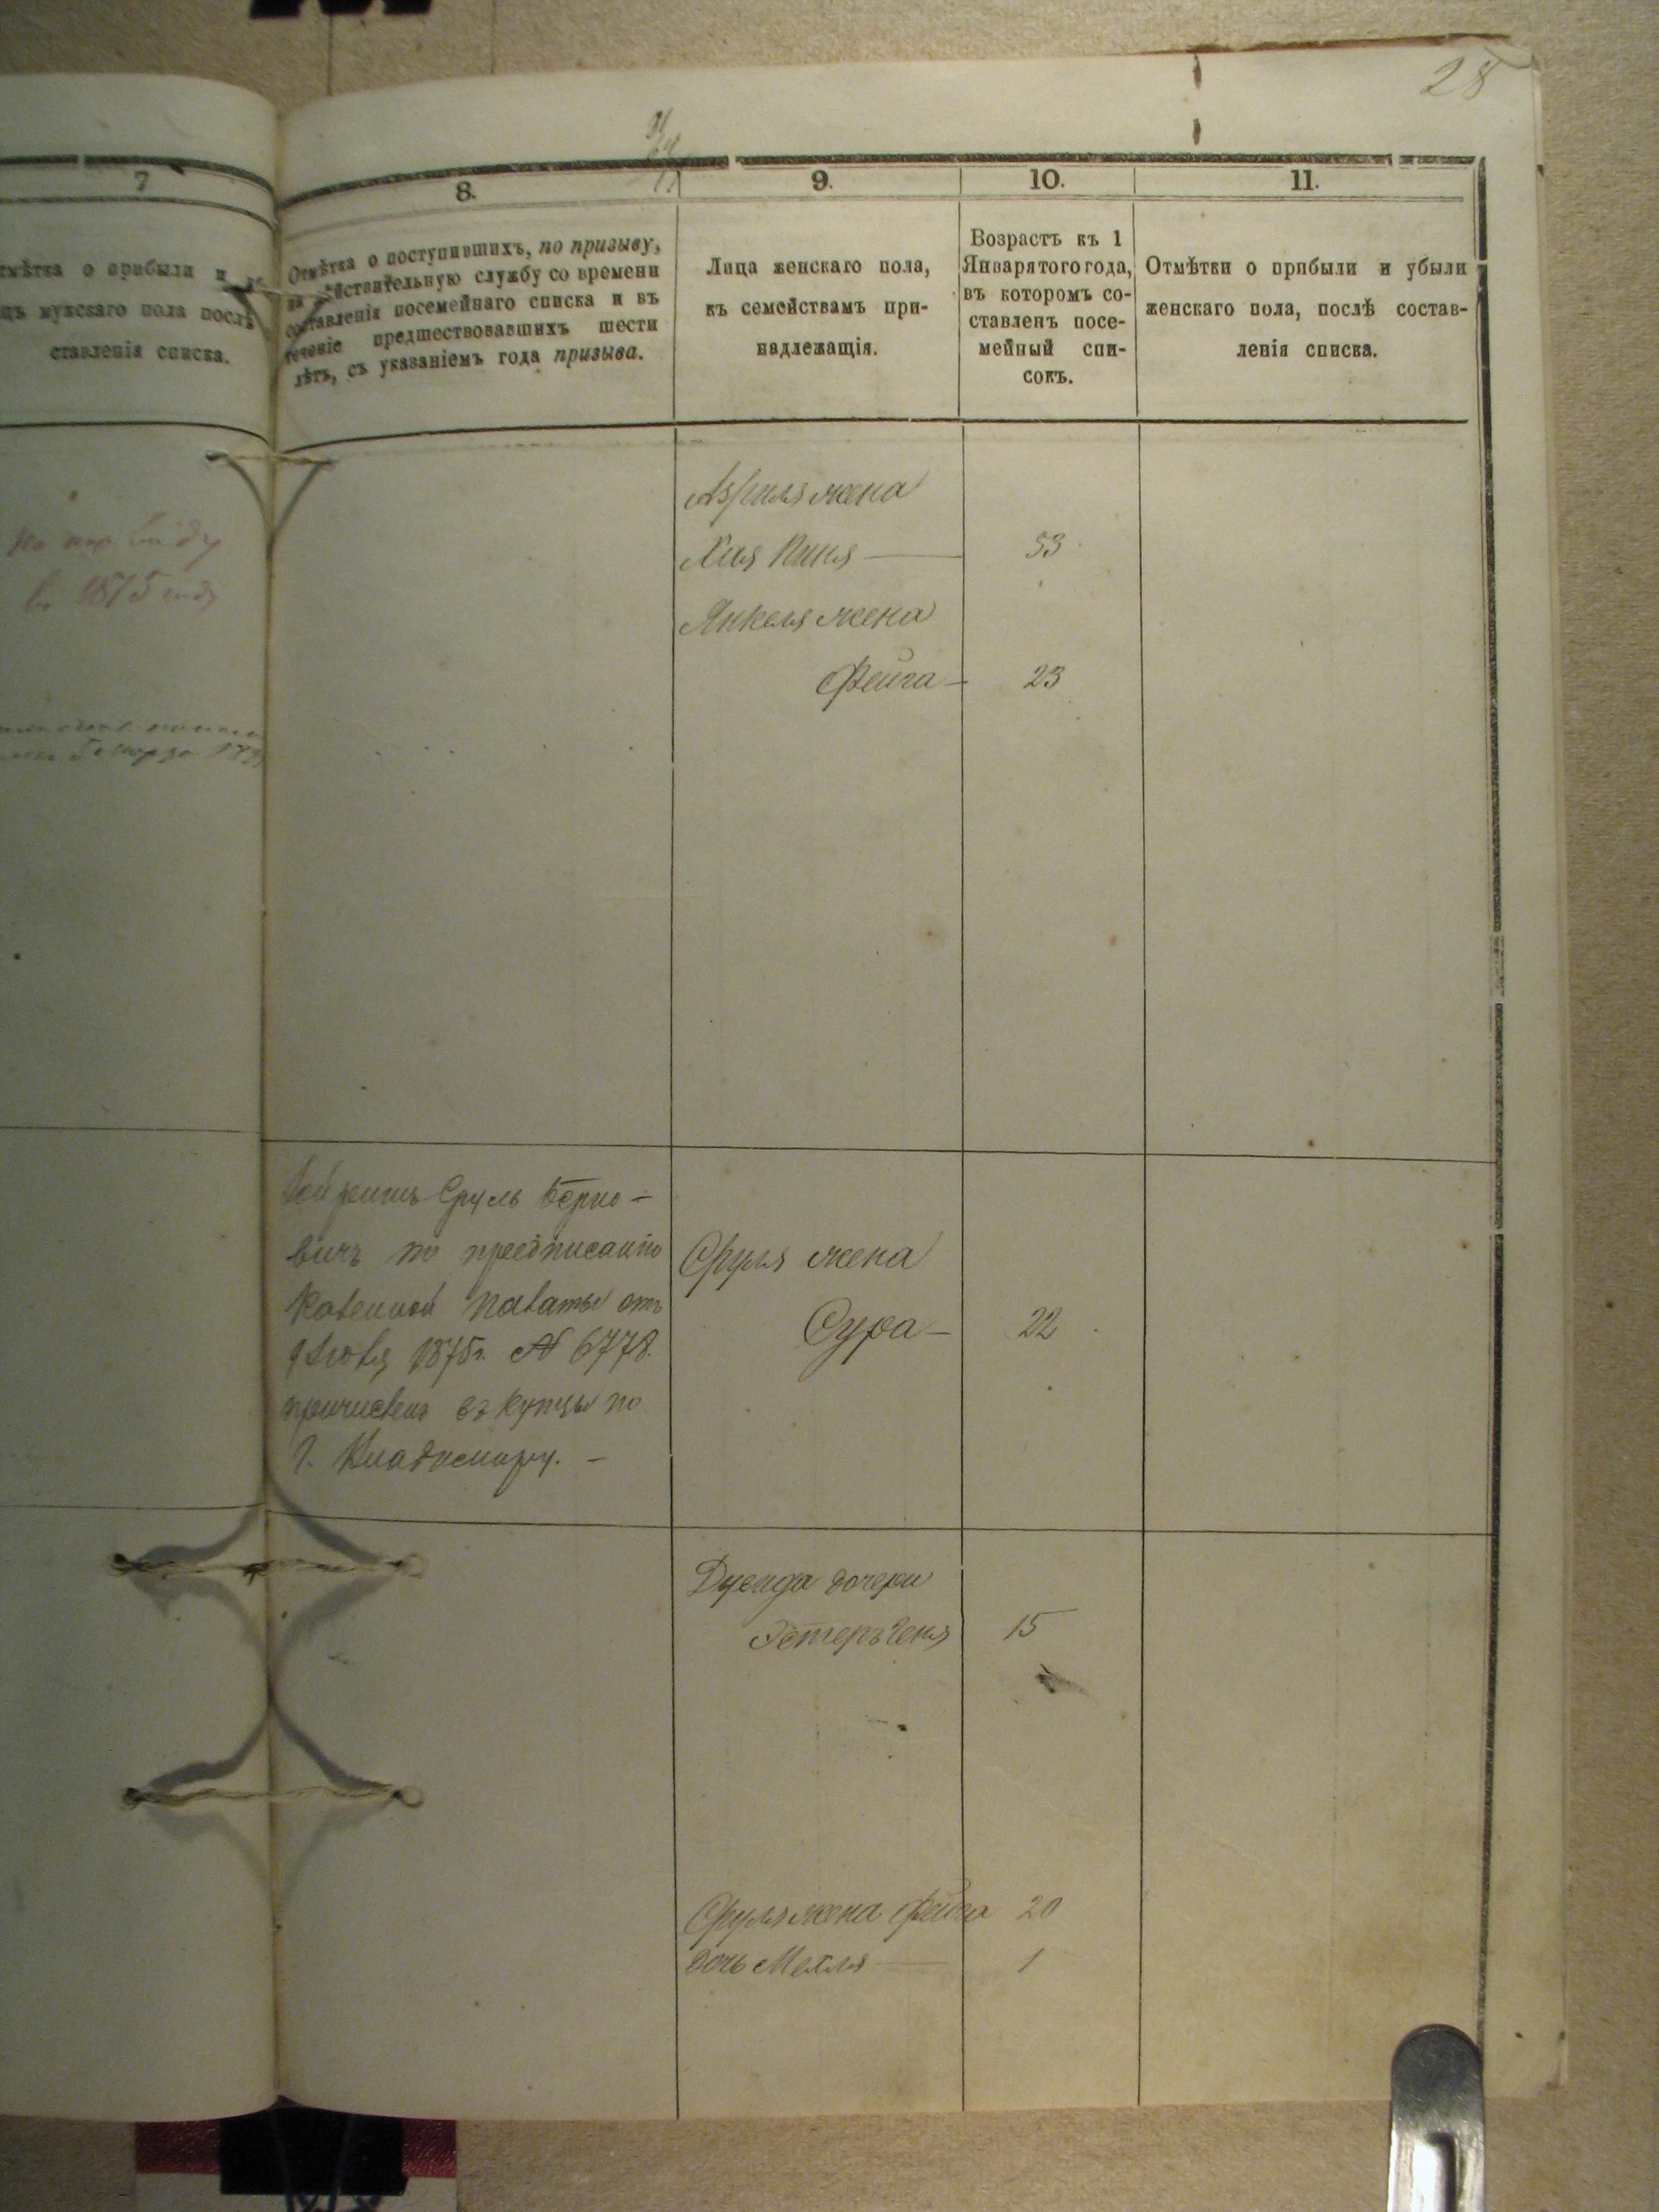 28
7
8.
9.
10.
11.
отмѣтка о прибыли и
мужскаго пола послѣ
ставленія списка.
Отмѣтка о поступившихъ, по призыву,
на дѣйствительную службу со времени
составленія посемейнаго списка и въ
теченіе предшествовавшихъ шести
лѣтъ, съ указаніемъ года призыва.
Лица женскаго пола,
къ семействамъ при-
надлежащія.
Возрастъ къ 1
Января того года,
въ которомъ со-
ставленъ посе-
мейный спи-
сокъ.
Отмѣтки о прибыли и убыли
женскаго пола, послѣ состав-
ленія списка.
въ 1875 году
Азриля жена
Хая 53
Янкеля жена
Фейга 23
Сруль Берко-
вичъ по предписанію
Казенной Палаты отъ
1875г. № 6778.
причисленъ въ купцы по
г. Владимиру.
Сруля жена
Сура 22
дочери
Эстеръ Геня 15
Сруля жена Фейга 20
дочь Махля 1